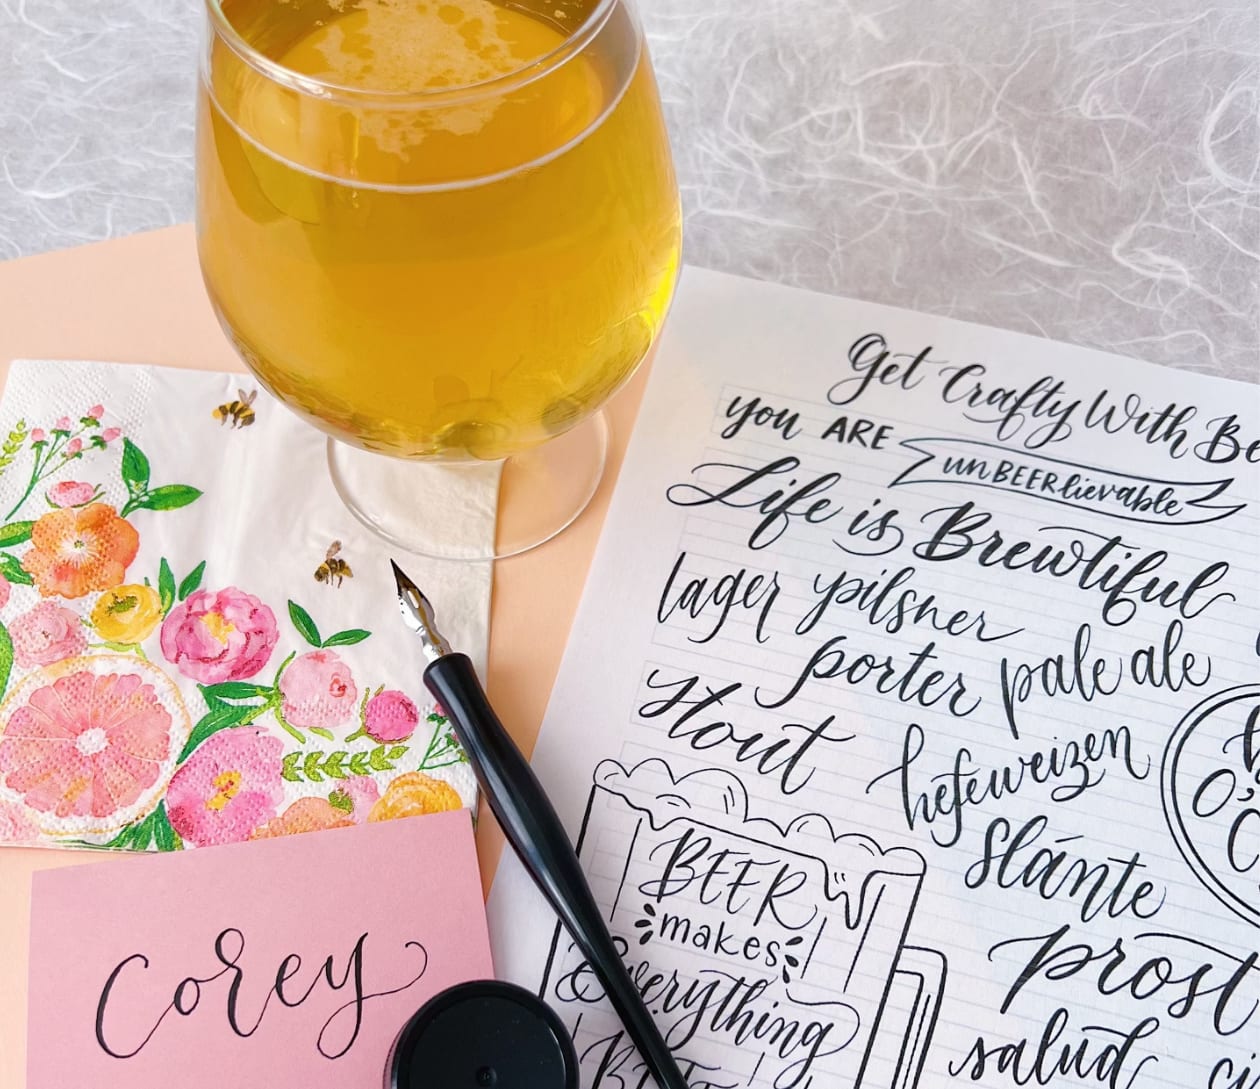 Get Crafty With
you ARE unBEERlievable
Life is Brewtiful
lager pilsner
porter pale ale
stout
hefeweizen
Sláinte
prost
salud
BEER
makes
Everything
Corey